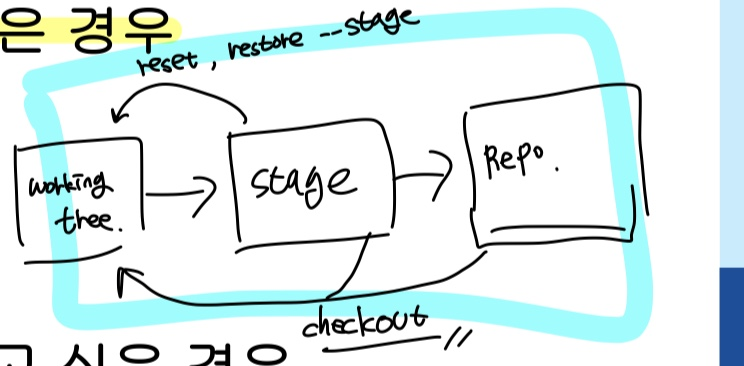 은 경우
reset, restore --stage
working
tree.
stage
Repo.
checkout
고 싶은 경우